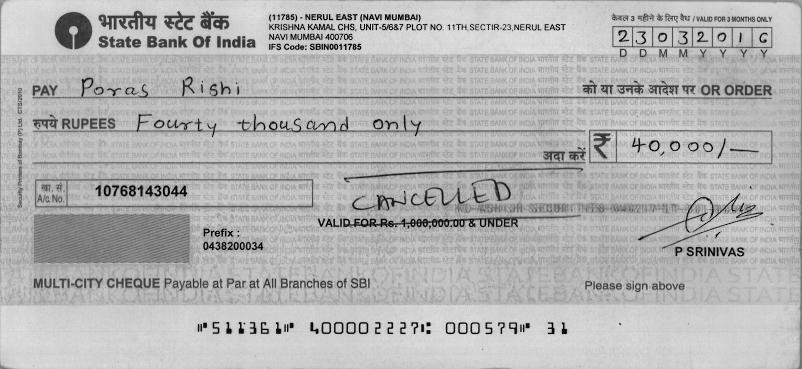 भारतीय स्टेट बैंक
State Bank Of India
(11785) - NERUL EAST (NAVI MUMBAI)
KRISHNA KAMAL CHS, UNIT-5/6&7 PLOT NO. 11TH,SECTIR-23,NERUL EAST
NAVI MUMBAI 400706
IFS Code: SBIN0011785
केवल 3 महीने के लिए वैध / VALID FOR 3 MONTHS ONLY
23032016
D D M M Y Y Y Y
PAY Poras Rishi को या उनके आदेश पर OR ORDER
रुपये RUPEES Fourty thousand only
अदा करें ₹ 40,000/-
खा. सं.
A/c No. 10768143044
CANCELLED
VALID FOR Rs. 1,000,000.00 & UNDER
Prefix :
0438200034
P SRINIVAS
MULTI-CITY CHEQUE Payable at Par at All Branches of SBI
Please sign above
⑈511361⑈ 400002227⑆ 000579⑈ 31